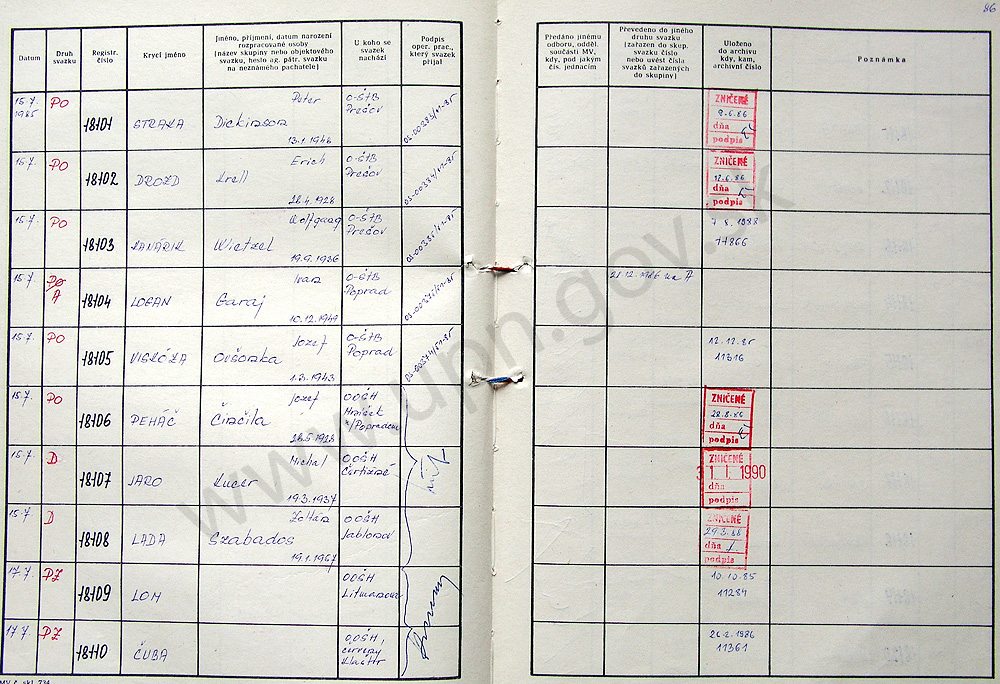 86
Datum
Druh svazku
Registr. číslo
Krycí jméno
Jméno, příjmení, datum narození rozpracované osoby (název skupiny nebo objektového svazku, heslo ag. pátr. svazku na neznámého pachatele)
U koho se svazek nachází
Podpis oper. prac., který svazek přijal
Předáno jinému odboru, odděl. součásti MV, kdy, pod jakým čís. jednacím
Převedeno do jiného druhu svazku (zařazen do skup. svazku číslo nebo uvést čísla svazků zařazených do skupiny)
Uloženo do archivu kdy, kam, archivní číslo
Poznámka
15.7. 1985 PO 18101 STRAKA Peter Dickinson 13.1.1946 O-ŠTB Prešov
ZNIČENÉ
dňa
podpis
15.7. PO 18102 DROZD Erich Krell 26.4.1928 O-ŠTB Prešov
ZNIČENÉ
12.6.86
dňa
podpis
15.7. PO 18103 KANÁRIK Wolfgang Wietzel 19.9.1936 O-ŠTB Prešov
7.8.1988
11866
15.7. PO A 18104 LOGAN Ivan Garaj 10.12.1949 O-ŠTB Poprad
21.12.1986 na A
15.7. PO 18105 VISKÓZA Jozef 1.3.1943 O-ŠTB Poprad
12.12.85
11316
15.7. PO 18106 PEHÁČ Jozef Činčila 1928 OOŠH
ZNIČENÉ
28.8.86
dňa
podpis
15.7. D 18107 JARO Michal Kucer 19.3.1937 OOŠH Čertižné
ZNIČENÉ
31. I. 1990
dňa
podpis
15.7. D 18108 LADA Zoltán Szabados 19.1.1967 OOŠH Jablonov
ZNIČENÉ
29.3.88
dňa
podpis
17.7. PZ 18109 LOM OOŠH
10.10.85
11284
17.7. PZ 18110 ČUBA OOŠH, Červený Kláštor
26.2.1986
11361
www.upn.gov.sk